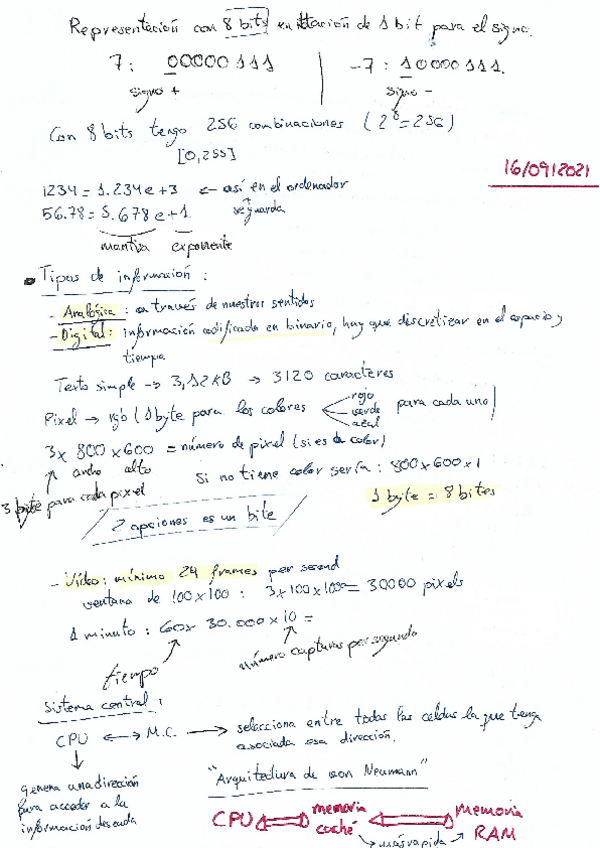 Representación con 8 bits en notación de 1 bit para el signo.
7: 00000111 | -7: 10000111.
signo + signo -
Con 8 bits tengo 256 combinaciones (2^8=256)
[0,255]
16/09/2021
1234 = 1.234e+3 ← así en el ordenador
56.78 = 5.678e+1. se guarda
mantisa exponente
Tipos de información:
- Analógica: a través de nuestros sentidos
- Digital: información codificada en binario, hay que discretizar en el espacio y
tiempo
Texto simple → 3,12KB → 3120 caracteres
Pixel → rgb (1 byte para los colores rojo verde azul para cada uno)
3 x 800 x 600 = número de pixel (si es a color)
ancho alto
Si no tiene color sería: 800x600x1
3 byte para cada pixel
1 byte = 8 bites
2 opciones es un bite
- Vídeo: mínimo 24 frames per second
ventana de 100x100: 3x100x100= 30000 pixels
1 minuto: 60x 30.000 x 10 =
tiempo
número capturas por segundo
Sistema central:
CPU ↔ M.C. → selecciona entre todas las celdas la que tenga
asociada esa dirección.
genera una dirección
para acceder a la
información deseada
"Arquitectura de von Neumann"
CPU ⇔ memoria caché ⇔ Memoria RAM
→ más rápida →